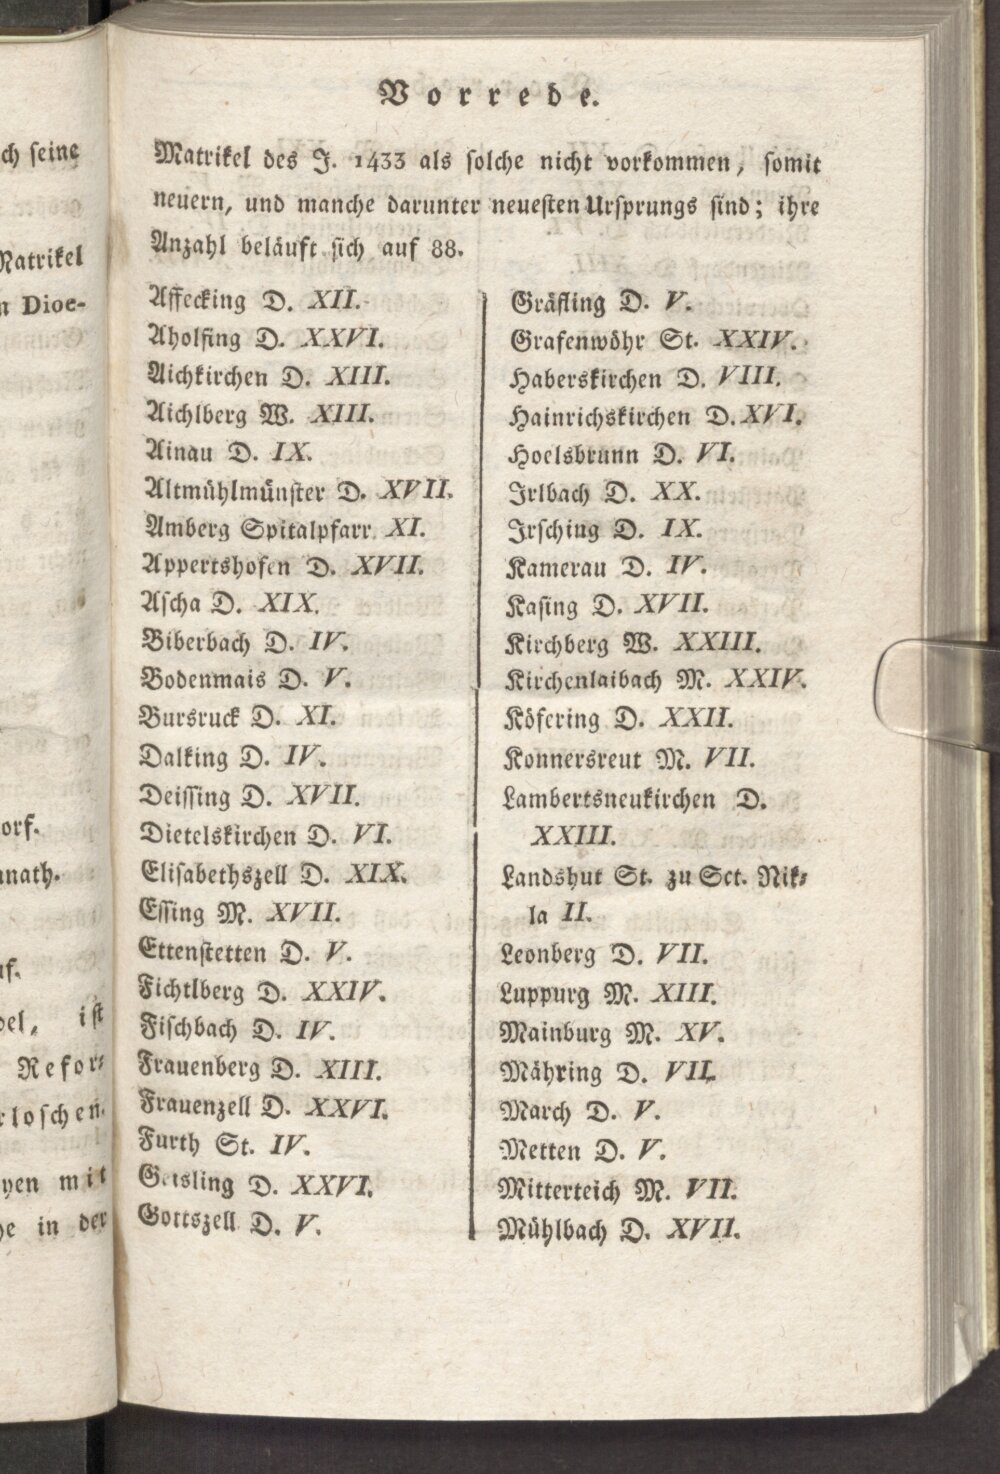 ch seine
Matrikel
n Dioe-
orf.
nnath.
uf.
del, ist
Refor-
rloschen.
yen mit
he in der
Vorrede.
Matrikel des J. 1433 als solche nicht vorkommen, somit
neuern, und manche darunter neuesten Ursprungs sind; ihre
Anzahl beläuft sich auf 88.
Affecking D. XII.
Aholfing D. XXVI.
Aichkirchen D. XIII.
Aichlberg W. XIII.
Ainau D. IX.
Altmühlmünster D. XVII.
Amberg Spitalpfarr XI.
Appertshofen D. XVII.
Ascha D. XIX.
Biberbach D. IV.
Bodenmais D. V.
Bursruck D. XI.
Dalking D. IV.
Deissing D. XVII.
Dietelskirchen D. VI.
Elisabethszell D. XIX.
Essing M. XVII.
Ettenstetten D. V.
Fichtlberg D. XXIV.
Fischbach D. IV.
Frauenberg D. XIII.
Frauenzell D. XXVI.
Furth St. IV.
Geisling D. XXVI.
Gottszell D. V.
Gräfling D. V.
Grafenwöhr St. XXIV.
Haberskirchen D. VIII.
Hainrichskirchen D. XVI.
Hoelsbrunn D. VI.
Irlbach D. XX.
Irsching D. IX.
Kamerau D. IV.
Kasing D. XVII.
Kirchberg W. XXIII.
Kirchenlaibach M. XXIV.
Köfering D. XXII.
Konnersreut M. VII.
Lambertsneukirchen D.
XXIII.
Landshut St. zu Sct. Nik-
la II.
Leonberg D. VII.
Luppurg M. XIII.
Mainburg M. XV.
Mähring D. VII.
March D. V.
Metten D. V.
Mitterteich M. VII.
Mühlbach D. XVII.